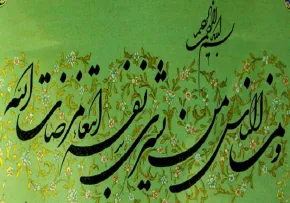 بسم الله الرحمن الرحیم
و من الناس من یشری نفسه ابتغاء مرضات الله